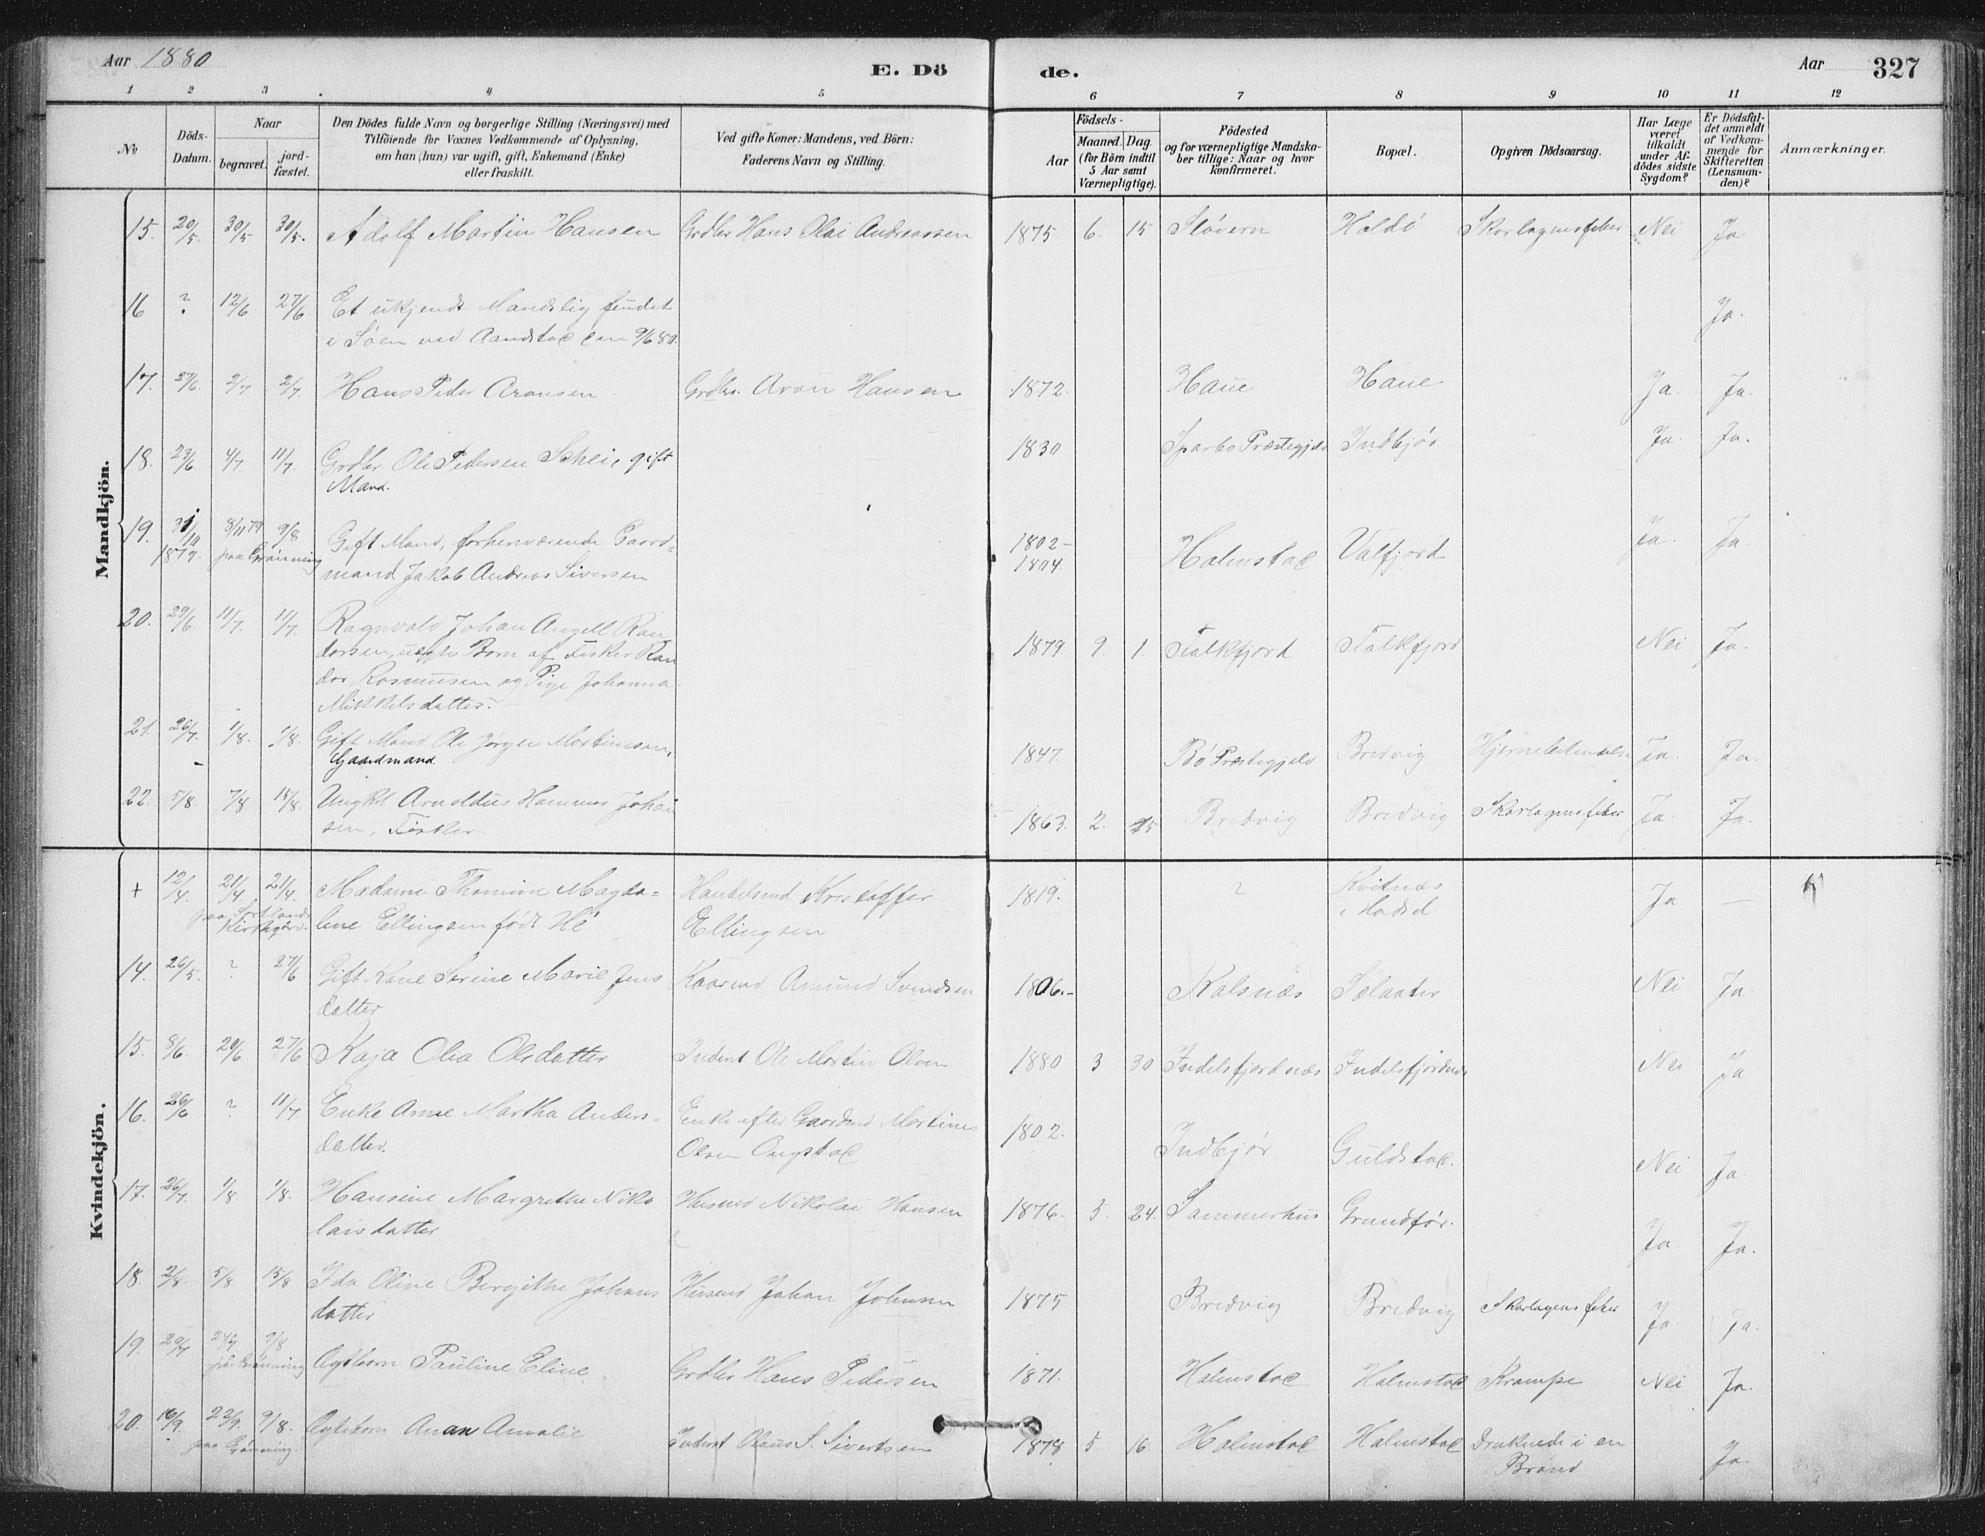 Aar 1880
E. Dö
de.
Aar
327
1 2 3 4 5 6 7 8 9 10 11 12
No
Döds-Datum.
Naar
begravet.
jord-fæstet.
Den Dödes fulde Navn og borgerlige Stilling (Næringsvei) med
Tilföiende for Voxnes Vedkommende af Oplysning,
om han (hun) var ugift, gift, Enkemand (Enke)
eller fraskilt.
Ved gifte Koner: Mandens, ved Börn:
Faderens Navn og Stilling.
Födsels-
Aar
Maaned. Dag.
(for Börn indtil
5 Aar samt
Værnepligtige).
Födested
og for værnepligtige Mandska-
ber tillige: Naar og hvor
konfirmeret.
Bopæl.
Opgiven Dödsaarsag.
Har Læge
været
tilkaldt
under Af-
dödes sidste
Sygdom?
Er Dödsfal-
det anmeldt
af Vedkom-
mende for
Skifteretten
(Lensman-
den)?
Anmærkninger.
Mandkjön.
15. 20/5. 30/5 30/5. Adolf Martin Hansen Grdbr Hans Olai Andreassen 1875 6. 15 Sløvern Haldö Skarlagensfeber Nei Ja.
16 ? 12/6 27/6. Et ukjendt Mandslig fundet
i Søen ved Aandstad den 9/6 80. Ja.
17. 27/6. 2/7 2/7. Hans Peder Aronsen Grdbr. Aron Hansen 1872. Haue Haue Ja. Ja.
18. 23/6 4/7 11/7. Grdbr Ole Pedersen Schei, gift
Mand. 1830 Sparbo Præstegjeld Indbjør. Ja. Ja.
19. 31/10 1879. 8/11 79 paa Grönning 9/8 Gift Mand, forhenværende Gaard-
mand Jakob Andreas Siversen 1802-
1804. Halmstad Valfjord Ja. Ja.
20. 29/6. 11/7. 11/7. Ragnvald Johan Angell Ran
dorsen, uegte Barn af Fisker Ran
dor Rasmussen og Pige Johanna
Mikkelsdatter. 1879 9. 1. Falkfjord Falkfjord Nei Ja.
21. 26/7. 1/8. 1/8. Gift Mand Ole Jørgen Martinsen,
Gaardmand 1847. Bö Præstegjeld Bredvig Hjernebetendelse Ja. Ja.
22. 5/8. 7/8 15/8. Ungkl Arnoldus Hammer Johan
sen, Fisker 1863. 2. 15 Bredvig Bredvig Skarlagensfeber Ja. Ja.
Kvindekjön.
+ 12/4. 21/4 21/4. paa Sortlands Kirkegård. Madame Thomine Magda-
line Ellingsen født Hé Handelsmd Kristoffer
Ellingsen 1819. ? Kvitnæs
i Hadsel Ja —
14. 26/5. ? 27/6 Gift Kone Serine Marie Jens
datter Kaarmd Amund Svendsen 1806.- Kalsnæs Selaater Nei Ja.
15. 8/6. 20/6 27/6 Kaja Olea Olsdatter Inderst Ole Martin Olsen 1880 3 30 Indelsfjordnæs Indelsfjordnæs Nei Ja
16. 26/6 ? 11/7 Enke Anne Martha Anders-
datter. Enke efter Gaardmd Martines
Olsen Ongstad 1802. Indbjør Guldstad. Nei Ja.
17. 26/7. 1/8. 1/8. Hansine Margrethe Niko
laisdatter Husmd Nikolai Hansen 1876. 5. 24. Sommerhus Grundför. Ja Ja.
18. 2/8. 5/8 15/8 Ida Oline Bergithe Johans
datter Husmd Johan Johnsen 1875 Bredvig Bredvig Skarlagensfeber Ja. Ja.
19. 9/8 paa Grönning Ægtebarn Pauline Eline Grdbr Hans Pedersen 1871. Halmstad Halmstad Krampe Nei Ja.
20. 16/9. 22/9. 9/8. paa Grönning. Ægtebarn Anan Amalie Inderst Olaus S. Sivertsen 1878 5 16. Halmstad Halmstad Druknede i en
Brønd Ja.